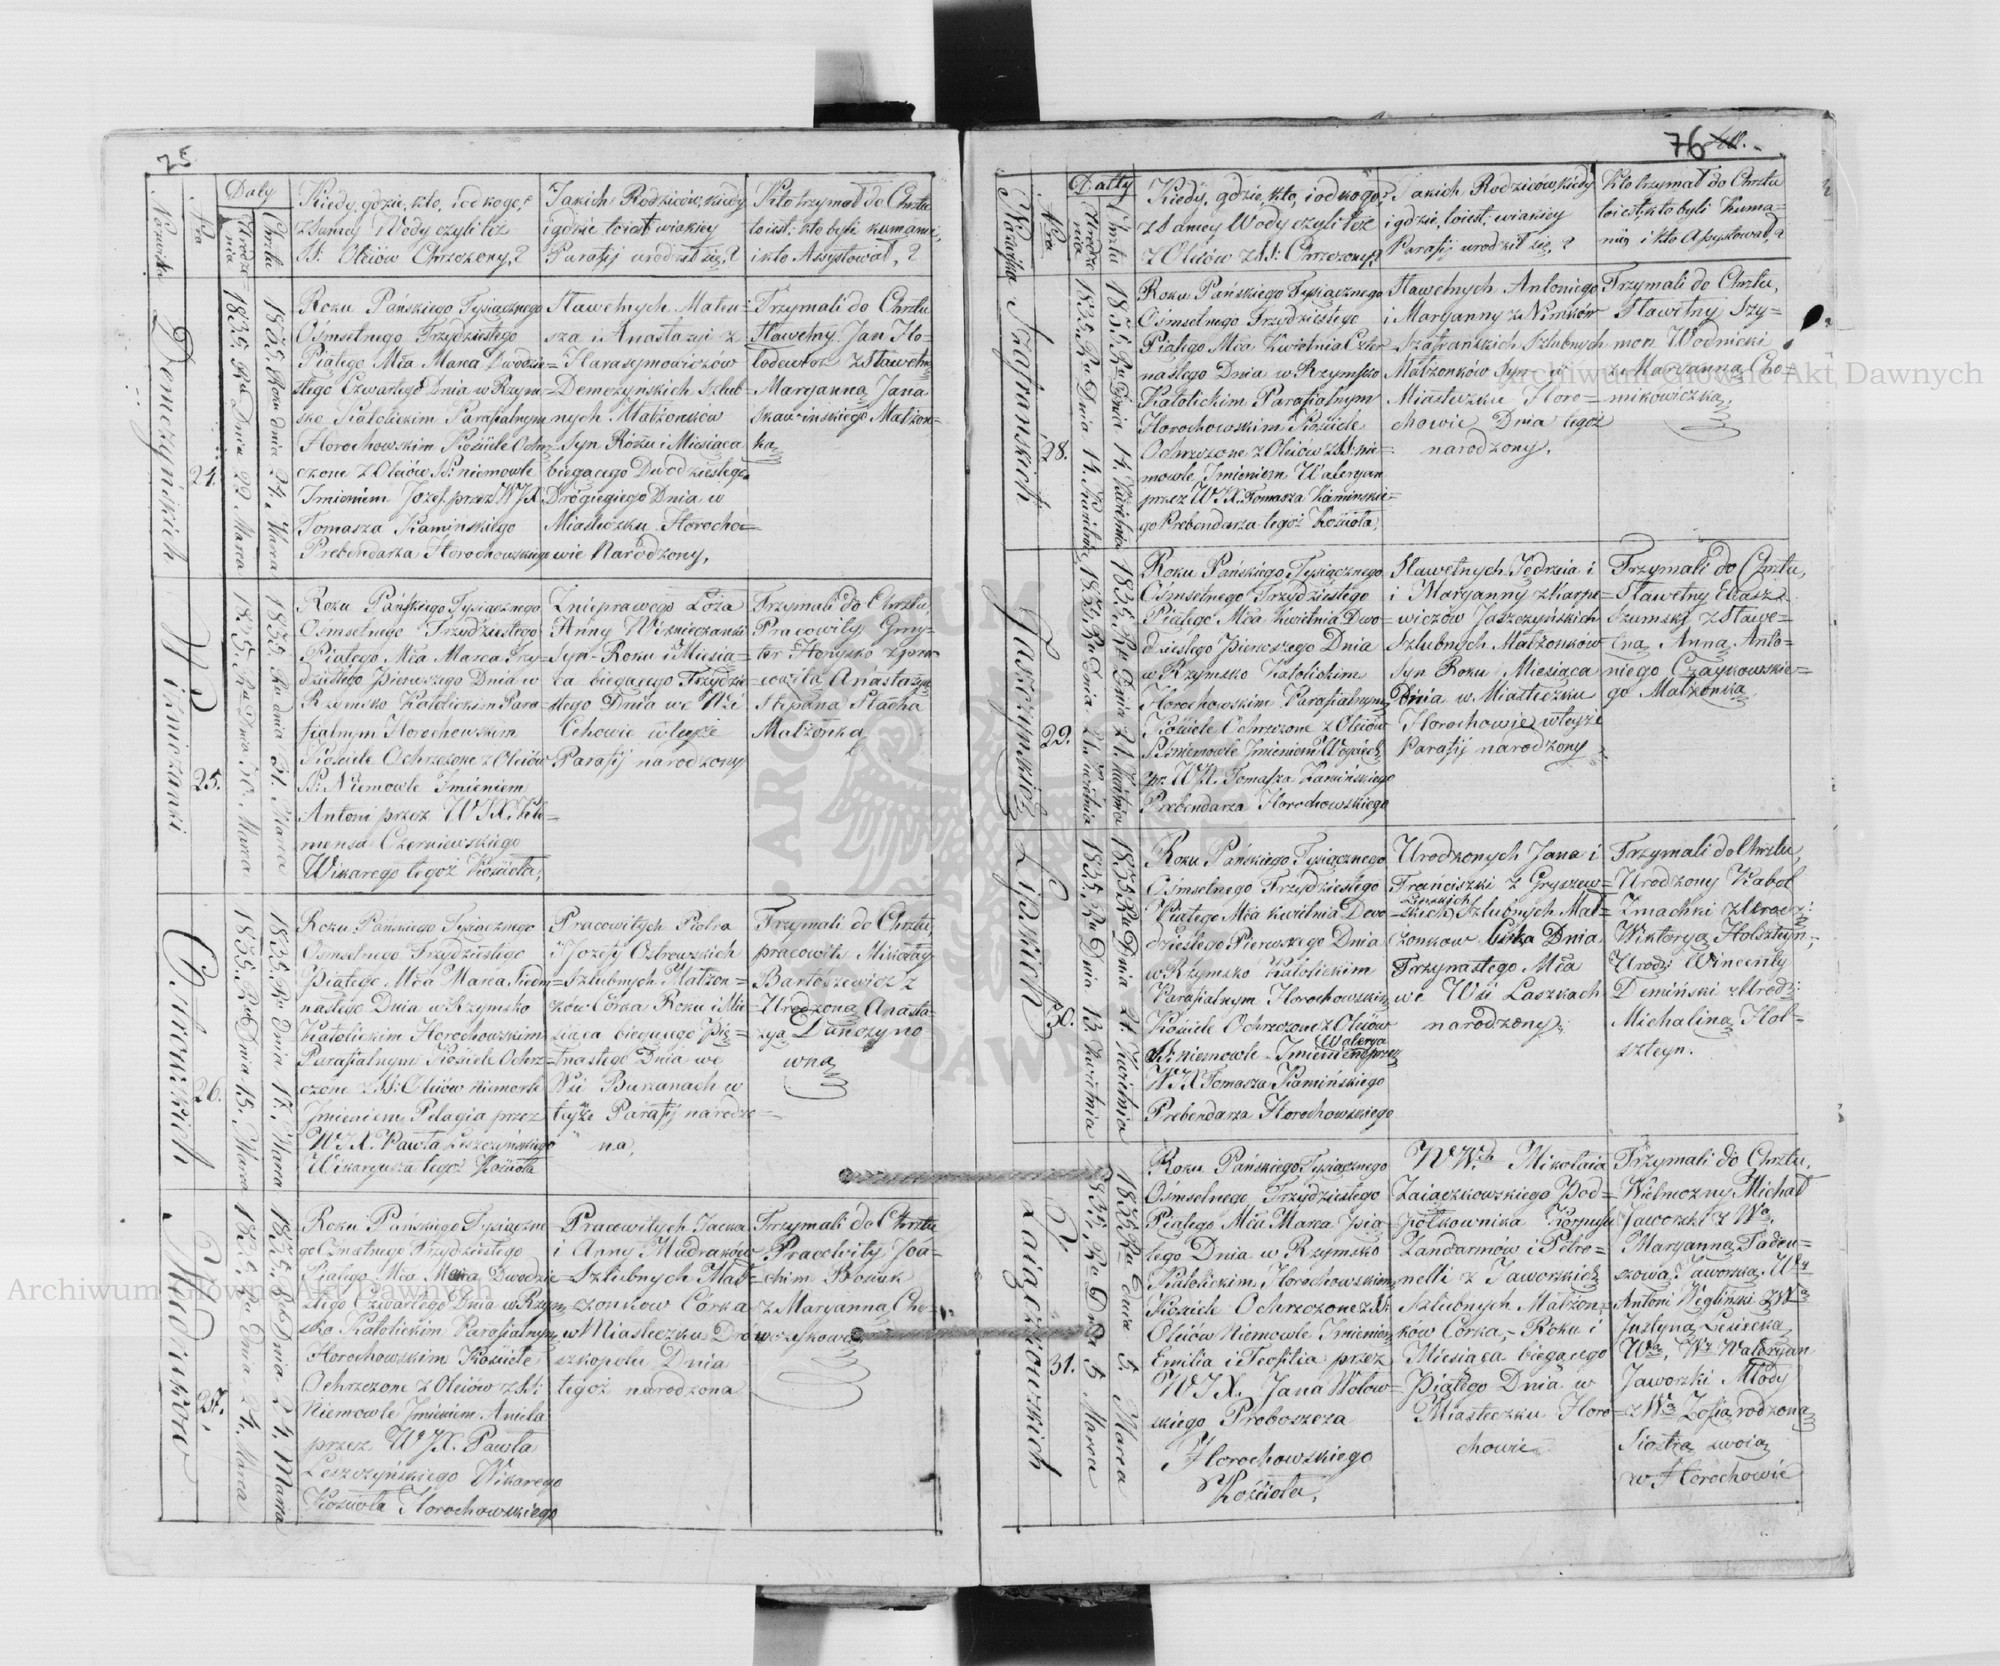 75
Nazwiska
Nra
Daty
Urodze=
nia
Chrztu
Kiedy, gdzie, kto, i od kogo,
z Samey Wody czyli też
SS: Oleiów Chrzczony,?
Jakich Rodziców, kiedy
i gdzie toiest wiakiey
Parafij urodził się,?
Kto trzymał do Chrztu
toiest: kto byli kumami,
i kto Assystował,?
Demczyńskich
24.
1835. Ru Dnia 22 Marca
1835. Roku dnia 24. Marca
Roku Pańskiego Tysiącznego
Ośmsetnego Trzydziestego
Piątego Mca Marca Dwodzie=
stego Czwartego Dnia w Rzym=
sko Katolickim Parafialnym
Horochowskim Kościele Ochrz=
czone z Oleiów SS: niemowle
Imieniem Jozef, przez WJX
Tomasza Kamińskiego
Prebendarza Horochowskiego
Sławetnych Mateu=
sza i Anastazyi z
Harasymowiczów
Demczyńskich Szlub=
nych Małżonków
Syn Roku i Miesiąca
biegącego Dwodziestego
Drógiegiego Dnia w
Miasteczku Horocho=
wie Narodzony,
Trzymali do Chrztu
Sławetny Jan Ho=
lodewicz z Sławetną
Maryanną Jana
Skawińskiego Małżon=
ką
Wiśnieczanki
25.
1835. Ru Dnia 30. Marca
1835 Ru dnia 31. Marca
Roku Pańskiego Tysiącznego
Ośmsetnego Trzydziestego
Piątego Mca Marca Trzy=
dziestego Pierwszego Dnia w
Rzymsko Katolickim Para=
fialnym Horochowskim
Kościele Ochrzczone z Oleiów
SS: Niemowle Imieniem
Antoni przez WJX. Kle=
mensa Czerniewskiego
Wikarego tegoż Kościoła,
Znieprawego Łoża
Anny Wiśnieczanki
Syn Roku i Miesią=
ca biegącego Trzydzie=
stego Dnia we Wsi
Cehowie w teyże
Parafij narodzony
Trzymali do Chrztu,
Pracowity Gry=
ter Honysko z pra=
cowitą Anastazyą
Stefana Stacha
Małżonką
Ostrowskich
26.
1835. Ru Dnia 15. Marca
1835. Ru Dnia 17. Marca
Roku Pańskiego Tysiącznego
Ośmsetnego Trzydziestego
Piątego Mca Marca Siedm=
nastego Dnia w Rzymsko
Katolickim Horochowskim
Parafialnym Kościele Ochrz=
czone z SS: Oleiów Niemowle
Imieniem Pelagia przez
WJX. Pawła Leszczyńskiego
Wikaryusza tegoż Kościoła
Pracowitych Piotra
i Jozefy Ostrowskich
Szlubnych Małżon=
ków Córka Roku i Mie=
siąca biegącego Pię=
tnastego Dnia we
Wsi Burkanach w
teyże Parafij narodzo=
na,
Trzymali do Chrztu,
pracowity Mikołay
Bartoszewicz z
Urodzoną Anasta=
zyą Dunczyno
wną
Mudraków
27.
1835. Ru Dnia 24. Marca
1835. Ru Dnia 24. Marca
Roku Pańskiego Tysiączne
go Ośmsetnego Trzydziestego
Piątego Mca Marca Dwodzie
stego Czwartego Dnia w Rzym=
sko Katolickim Parafialnym
Horochowskim Kościele
Ochrzczone z Oleiów z SS:
Niemowle Imieniem Aniela
przez WJX. Pawła
Leszczyńskiego Wikarego
Kościoła Horochowskiego
Pracowitych Jacka
i Anny Mudraków
Szlubnych Mał=
żonkow Córka
w Miasteczku Dró
szkopolu Dnia
tegoż narodzona
Trzymali do Chrztu
Pracowity Joa=
chim Bosiak
z Maryanną Cho=
woczykową
76
Nazwiska
Nra
Datty
Urodze
nia
Chrztu
Kiedy, gdzie, kto, i od kogo,
z Samey Wody czyli też
z Oleiów z SS: Chrzczony?
Jakich Rodziców kiedy
i gdzie, toiest, wiakiey
Parafij urodził się,?
Kto trzymał do Chrztu
toiest kto byli Kuma=
mi i kto Assystował,?
Szafrańskich
28.
1835. Ru Dnia 14. Kwietnia
1835. Ru Dnia 14. Kwietnia
Roku Pańskiego Tysiącznego
Ośmsetnego Trzydziestego
Piątego Mca Kwietnia Czter=
nastego Dnia w Rzymsko
Katolickim Parafialnym
Horochowskim Kościele
Ochrzczone z Oleiów z SS: nie=
mowle Imieniem Waleryan
przez WJX. Tomasza Kamińskie=
go Prebendarza tegoż Kościoła,
Sławetnych Antoniego
i Maryanny z Nimsów
Szafrańskich Szlubnych
Małżonków Syn w
Miasteczku Horo=
chowie Dnia tegoż
narodzony,
Trzymali do Chrztu,
Sławetny Szy=
mon Wodnicki
z Maryanną Cho=
mikowiczką,
Jaszczyńskich
29.
1835. Ru Dnia 21 Kwietnia
1835. Ru Dnia 21 Kwietnia
Roku Pańskiego Tysiącznego
Ośmsetnego Trzydziestego
Piątego Mca Kwietnia Dwo=
dziestego Pierwszego Dnia
w Rzymsko Katolickim
Horochowskim Parafialnym
Kościele Ochrzczone z Oleiów
SS: niemowle Imieniem Woyciech
pr. WJX. Tomasza Kamińskiego
Prebendarza Horochowskiego
Sławetnych Jędrzeia i
i Maryanny z Karpo=
wiczów Jaszczyńskich
Szlubnych Małżonków
Syn Roku Miesiąca
Dnia w Miasteczku
Horochowie w teyże
Parafij narodzony
Trzymali do Chrztu,
Sławetny Eliasz
Szumski z Sławe=
tną Anną Anto=
niego Czaykowskie=
go Małżonką
30.
1835. Ru Dnia 13. Kwietnia
1835. Ru Dnia 21. Kwietnia
Roku Pańskiego Tysiącznego
Ośmsetnego Trzydziestego
Piątego Mca Kwietnia Dwo=
dziestego Pierwszego Dnia
w Rzymsko Katolickim
Parafialnym Horochowskim
Kościele Ochrzczone z Oleiów
SS: niemowle Imieniem Walerya przez
WJX Tomasza Kamińskiego
Prebendarza Horochowskiego
Urodzonych Jana i
Franciszki z Gryszew=
skich Szlubnych Mał=
żonkow Córka Dnia
Trzynastego Mca
we Wsi Laszkach
narodzony,
Trzymali do Chrztu,
Urodzony Karol
Zmachki z Urodz:
Wiktoryą Holsztyn,
Urodz: Wincenty
Demiński z Urodz:
Michaliną Hol=
sztyn.
Zaiączkowskich
31.
1835. Ru Dnia 5 Marca
1835 Ru Dnia 5. Marca
Roku Pańskiego Tysiącznego
Ośmsetnego Trzydziestego
Piątego Mca Marca Pią
tego Dnia w Rzymsko
Katolickim Horochowskim
Kościele Ochrzczone z SS:
Oleiów Niemowle Imieniem
Emilia i Teofilia przez
WJX. Jana Wołow=
skiego Proboszcza
Horochowskiego
Kościoła,
WWch Mikołaia
Zaiączkowskiego Pod=
półkownika Korpusu
Zandarmów i Petro=
nelli z Jaworskich
Szlubnych Małżon=
ków Córka, Roku i
Miesiąca biegącego
Piątego Dnia w
Miasteczku Horo=
chowie
Trzymali do Chrztu,
Wielmożny Michał
Jaworski z Wą
Maryanną Tadeu=
szową Jaworską, Wy
Antoni Węgliński z Wą
Justyną Lesiecką,
Wy Waleryan
Jaworski Młody
z Wą Zofią rodzoną
Siostrą swoią
w Horochowie
Archiwum Główne Akt Dawnych
Archiwum Główne Akt Dawnych